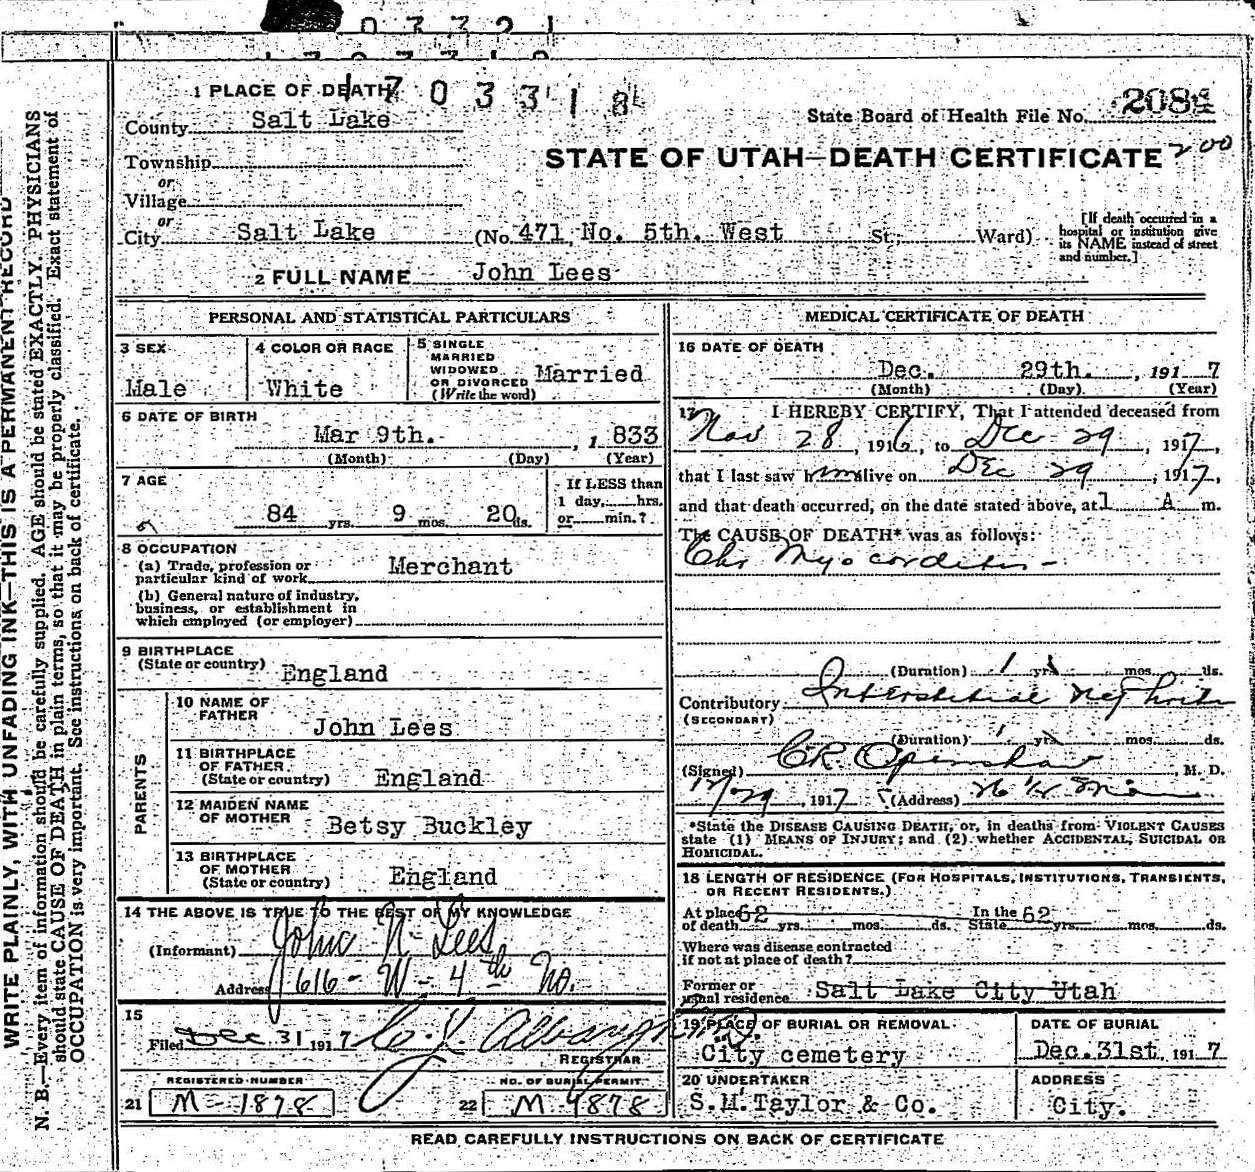 03321
1703318
1 PLACE OF DEATH
1703318
State Board of Health File No. 2084
County Salt Lake
STATE OF UTAH—DEATH CERTIFICATE 200
Township
or
Village
or
City Salt Lake (No. 471, No. 5th. West St.; Ward)
[If death occurred in a
hospital or institution give
its NAME instead of street
and number.]
2 FULL NAME John Lees
PERSONAL AND STATISTICAL PARTICULARS
3 SEX
Male
4 COLOR OR RACE
White
5 SINGLE
MARRIED
WIDOWED
OR DIVORCED
(Write the word)
Married
6 DATE OF BIRTH
Mar 9th. , 1 833
(Month) (Day) (Year)
7 AGE
84 yrs. 9 mos. 20 ds.
If LESS than
1 day, hrs.
or min.?
8 OCCUPATION
(a) Trade, profession or
particular kind of work Merchant
(b) General nature of industry,
business, or establishment in
which employed (or employer)
9 BIRTHPLACE
(State or country) England
PARENTS
10 NAME OF
FATHER John Lees
11 BIRTHPLACE
OF FATHER
(State or country) England
12 MAIDEN NAME
OF MOTHER Betsy Buckley
13 BIRTHPLACE
OF MOTHER
(State or country) England
14 THE ABOVE IS TRUE TO THE BEST OF MY KNOWLEDGE
(Informant) John N. Lees
Address 616 - W - 4th No.
15
Filed Dec 31 191 7
REGISTRAR
REGISTERED NUMBER
21 M-1878
NO. OF BURIAL PERMIT
22 M 1878
MEDICAL CERTIFICATE OF DEATH
16 DATE OF DEATH
Dec. 29th. , 191 7
(Month) (Day) (Year)
17 I HEREBY CERTIFY, That I attended deceased from
Nov 28, 1916, to Dec 29, 1917,
that I last saw him alive on Dec 29, 1917,
and that death occurred, on the date stated above, at 1 A m.
The CAUSE OF DEATH* was as follows:
Chr Myocorditis -
(Duration) 1 yrs mos. ds.
Contributory Interstitial Nephritis
(SECONDARY)
(Duration) 1 yrs mos. ds.
(Signed) C.R. Openshaw, M. D.
12/29, 1917 (Address)
*State the DISEASE CAUSING DEATH, or, in deaths from VIOLENT CAUSES
state (1) MEANS OF INJURY; and (2) whether ACCIDENTAL, SUICIDAL OR
HOMICIDAL.
18 LENGTH OF RESIDENCE (FOR HOSPITALS, INSTITUTIONS, TRANSIENTS,
OR RECENT RESIDENTS.)
At place 62 In the 62
of death yrs. mos. ds. State yrs. mos. ds.
Where was disease contracted
if not at place of death?
Former or
usual residence Salt Lake City Utah
19 PLACE OF BURIAL OR REMOVAL
City cemetery
DATE OF BURIAL
Dec. 31st., 191 7
20 UNDERTAKER
S.M. Taylor & Co.
ADDRESS
City.
READ CAREFULLY INSTRUCTIONS ON BACK OF CERTIFICATE
WRITE PLAINLY, WITH UNFADING INK—THIS IS A PERMANENT RECORD
N. B.—Every item of information should be carefully supplied. AGE should be stated EXACTLY. PHYSICIANS
should state CAUSE OF DEATH in plain terms, so that it may be properly classified. Exact statement of
OCCUPATION is very important. See instructions on back of certificate.